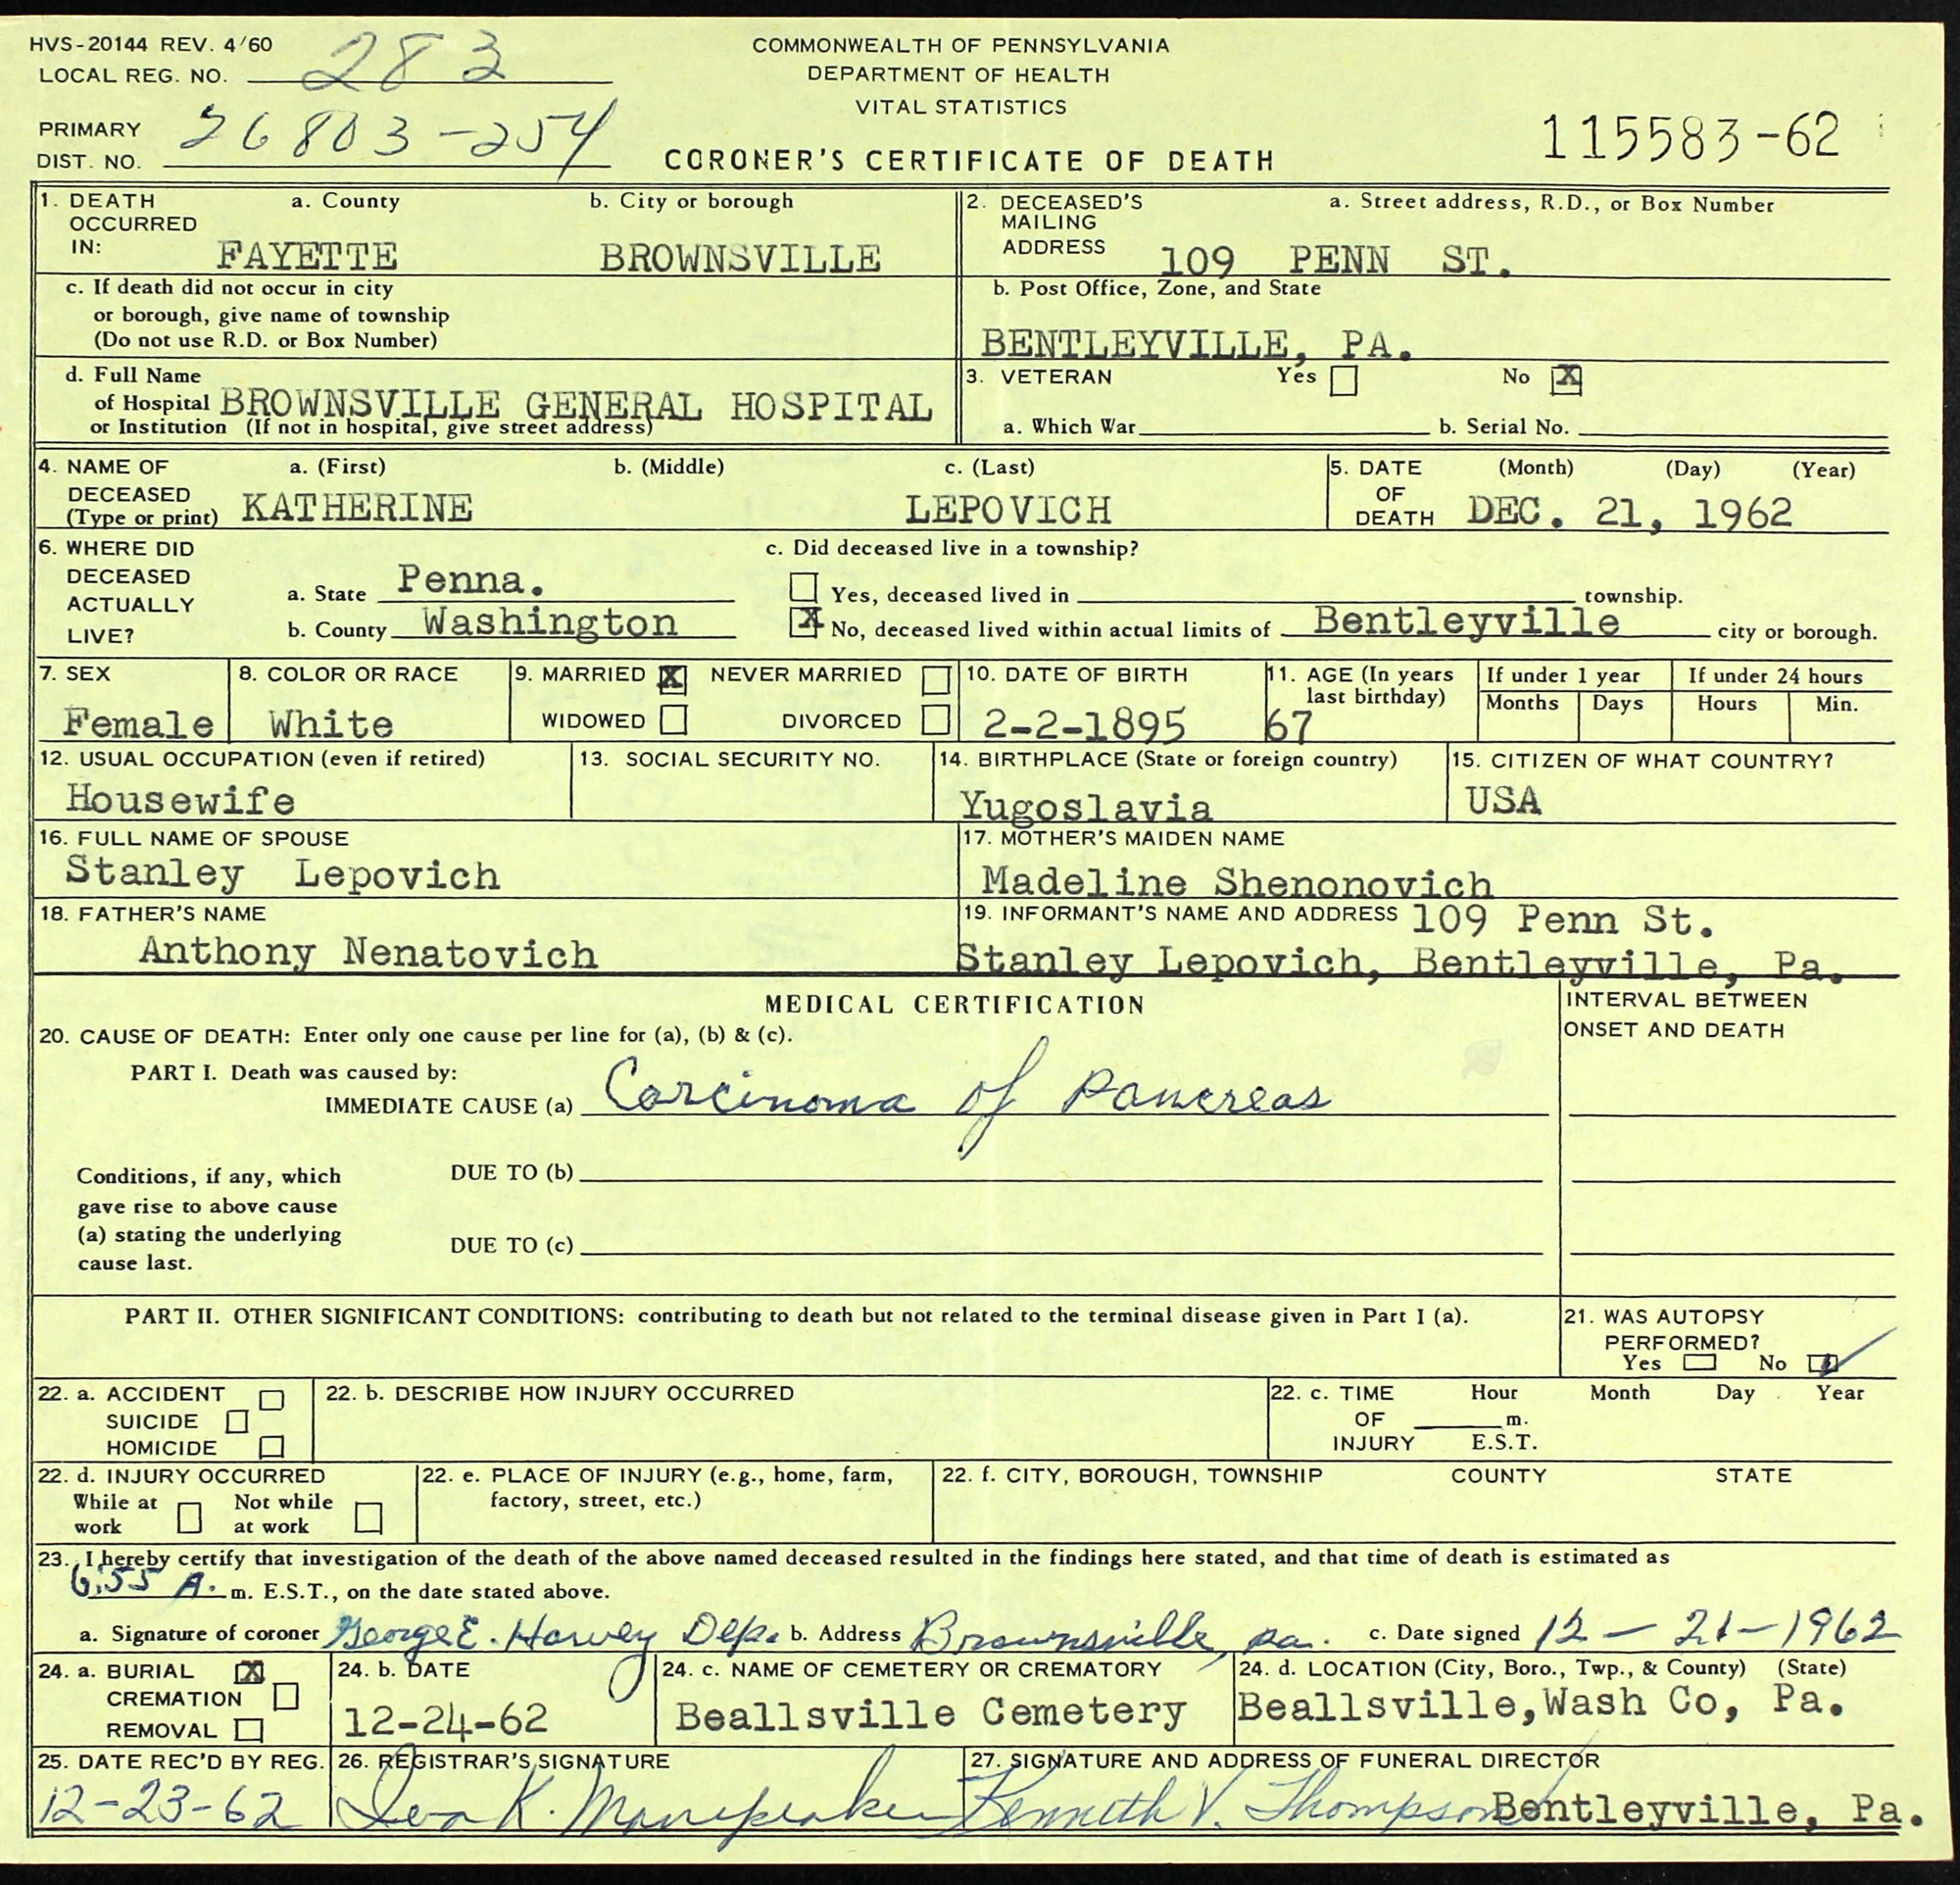 HVS-20144 REV. 4/60
LOCAL REG. NO. 283
PRIMARY DIST. NO. 26803-254
COMMONWEALTH OF PENNSYLVANIA
DEPARTMENT OF HEALTH
VITAL STATISTICS
CORONER'S CERTIFICATE OF DEATH
115583-62
1. DEATH OCCURRED IN: a. County FAYETTE b. City or borough BROWNSVILLE
2. DECEASED'S MAILING ADDRESS a. Street address, R.D., or Box Number 109 PENN ST.
c. If death did not occur in city
or borough, give name of township
(Do not use R.D. or Box Number)
b. Post Office, Zone, and State
BENTLEYVILLE, PA.
d. Full Name
of Hospital BROWNSVILLE GENERAL HOSPITAL
or Institution (If not in hospital, give street address)
3. VETERAN Yes No X
a. Which War b. Serial No.
4. NAME OF DECEASED (Type or print) a. (First) b. (Middle) c. (Last)
KATHERINE LEPOVICH
5. DATE OF DEATH (Month) (Day) (Year)
DEC. 21, 1962
6. WHERE DID DECEASED ACTUALLY LIVE?
a. State Penna.
b. County Washington
c. Did deceased live in a township?
Yes, deceased lived in township.
X No, deceased lived within actual limits of Bentleyville city or borough.
7. SEX
Female
8. COLOR OR RACE
White
9. MARRIED X NEVER MARRIED
WIDOWED DIVORCED
10. DATE OF BIRTH
2-2-1895
11. AGE (In years last birthday)
67
If under 1 year
Months Days
If under 24 hours
Hours Min.
12. USUAL OCCUPATION (even if retired)
Housewife
13. SOCIAL SECURITY NO.
14. BIRTHPLACE (State or foreign country)
Yugoslavia
15. CITIZEN OF WHAT COUNTRY?
USA
16. FULL NAME OF SPOUSE
Stanley Lepovich
17. MOTHER'S MAIDEN NAME
Madeline Shenonovich
18. FATHER'S NAME
Anthony Nenatovich
19. INFORMANT'S NAME AND ADDRESS 109 Penn St.
Stanley Lepovich, Bentleyville, Pa.
MEDICAL CERTIFICATION
INTERVAL BETWEEN
ONSET AND DEATH
20. CAUSE OF DEATH: Enter only one cause per line for (a), (b) & (c).
PART I. Death was caused by:
IMMEDIATE CAUSE (a) Carcinoma of Pancreas
Conditions, if any, which
gave rise to above cause
(a) stating the underlying
cause last.
DUE TO (b)
DUE TO (c)
PART II. OTHER SIGNIFICANT CONDITIONS: contributing to death but not related to the terminal disease given in Part I (a).
21. WAS AUTOPSY
PERFORMED?
Yes No ✓
22. a. ACCIDENT
SUICIDE
HOMICIDE
22. b. DESCRIBE HOW INJURY OCCURRED
22. c. TIME OF INJURY Hour Month Day Year
m.
E.S.T.
22. d. INJURY OCCURRED
While at work Not while at work
22. e. PLACE OF INJURY (e.g., home, farm,
factory, street, etc.)
22. f. CITY, BOROUGH, TOWNSHIP COUNTY STATE
23. I hereby certify that investigation of the death of the above named deceased resulted in the findings here stated, and that time of death is estimated as
6:55 A. m. E.S.T., on the date stated above.
a. Signature of coroner George E. Harvey Dep. b. Address Brownsville, Pa. c. Date signed 12-21-1962
24. a. BURIAL X
CREMATION
REMOVAL
24. b. DATE
12-24-62
24. c. NAME OF CEMETERY OR CREMATORY
Beallsville Cemetery
24. d. LOCATION (City, Boro., Twp., & County) (State)
Beallsville, Wash Co, Pa.
25. DATE REC'D BY REG.
12-23-62
26. REGISTRAR'S SIGNATURE
K.
27. SIGNATURE AND ADDRESS OF FUNERAL DIRECTOR
Kenneth V. Thompson Bentleyville, Pa.